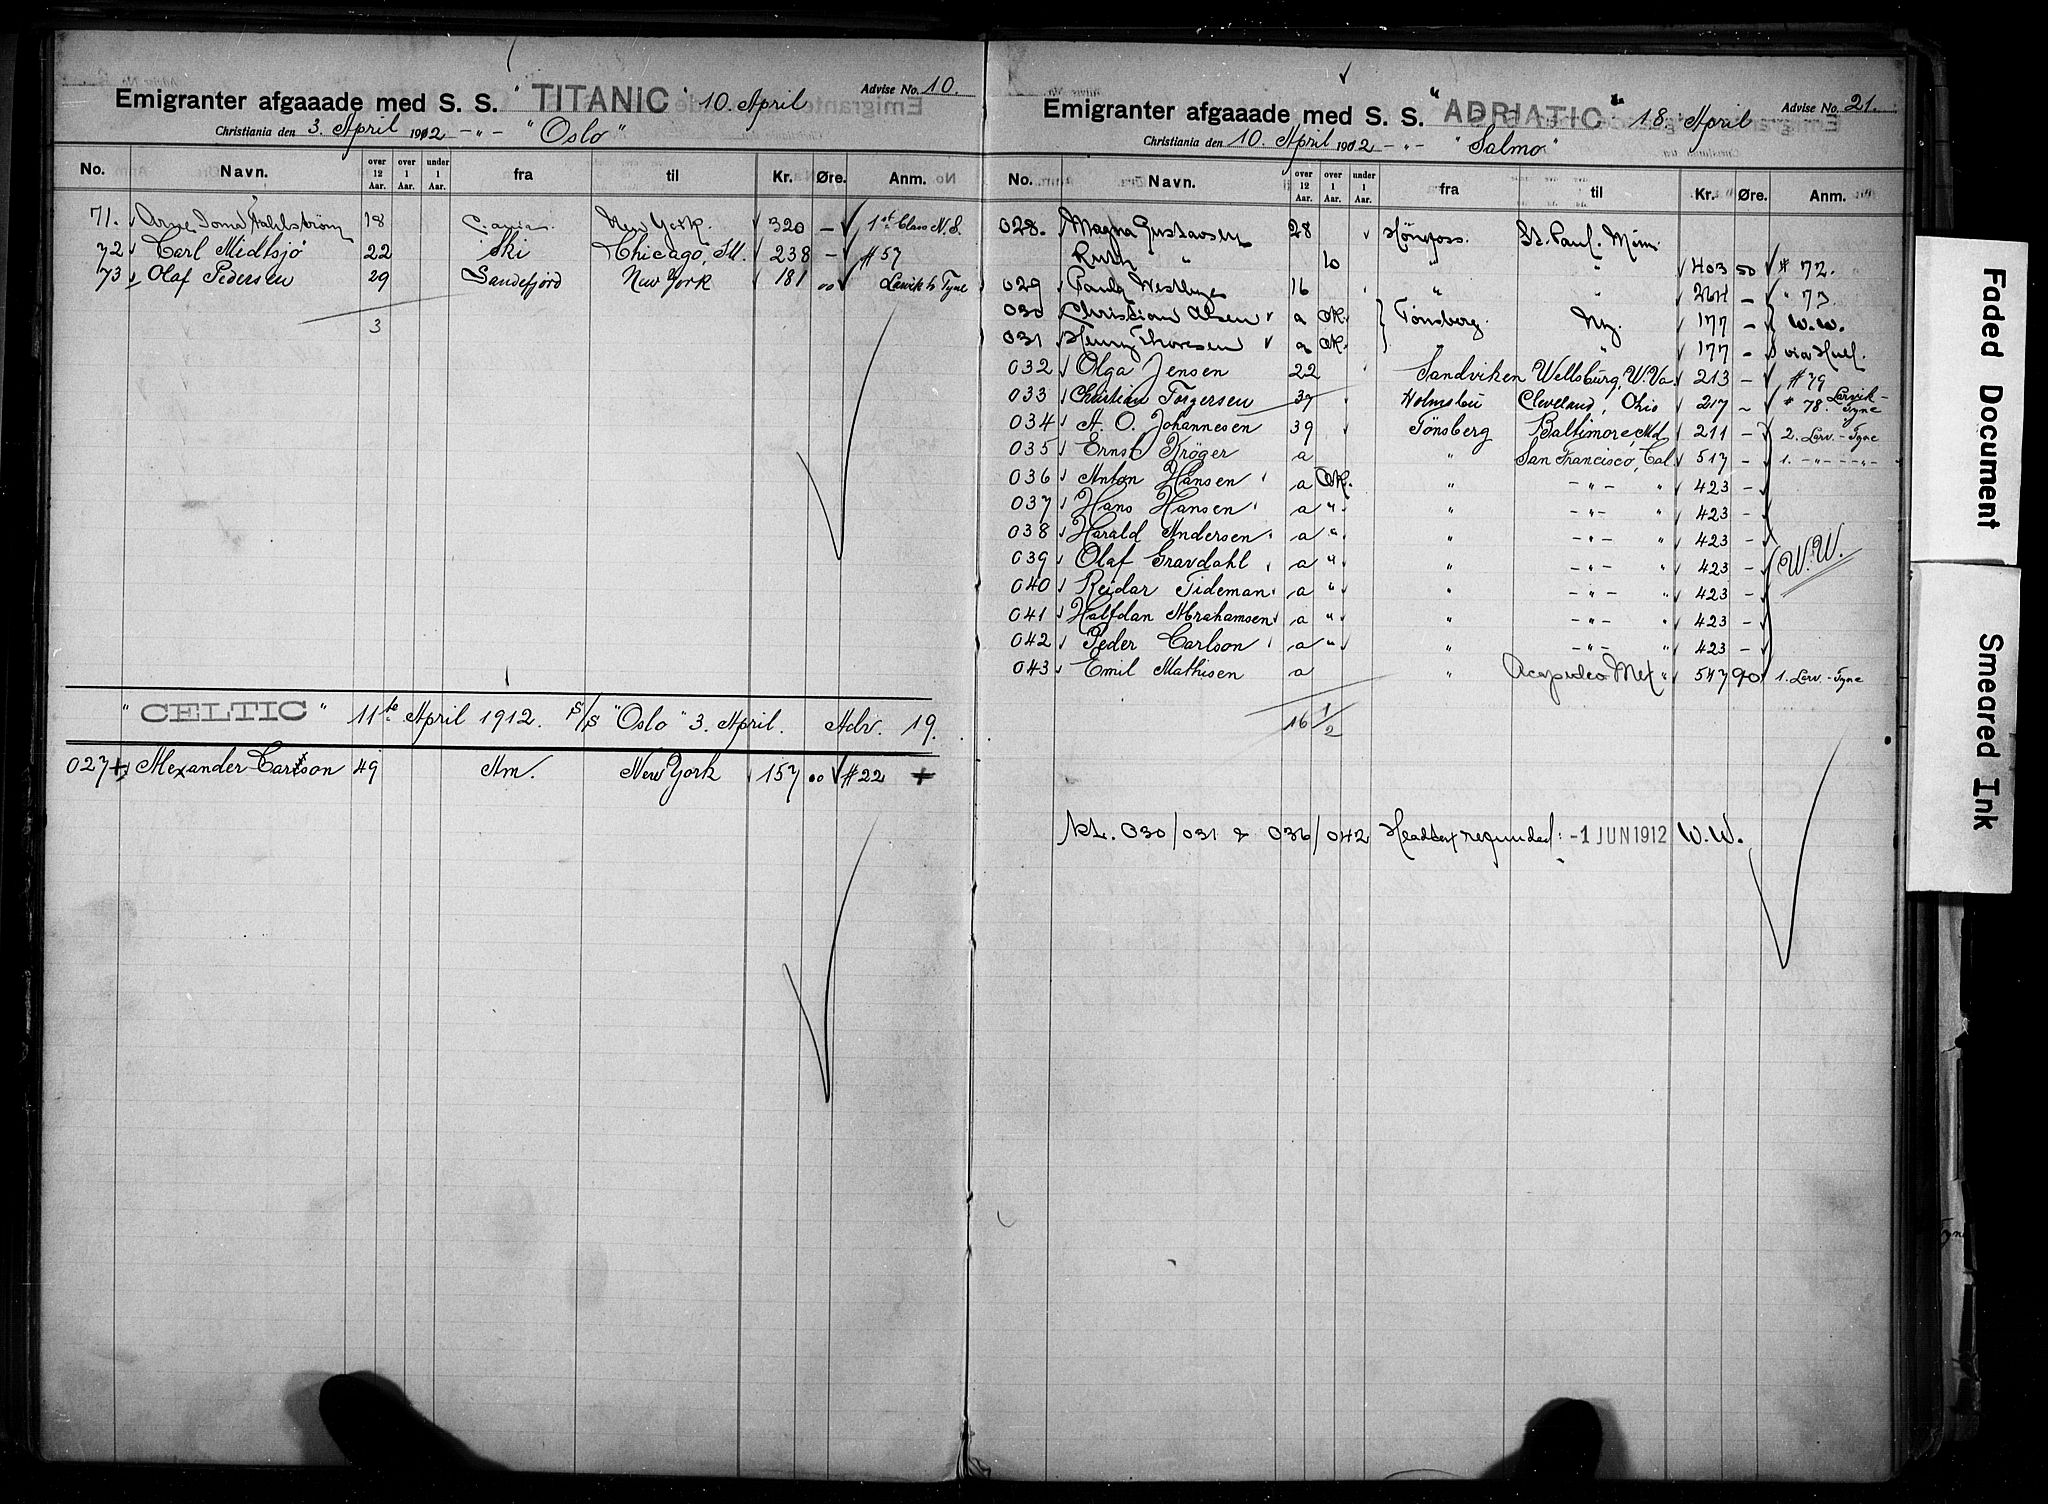 Emigranter afgaaade med S. S. "TITANIC" 10. April Advise No. 10.
Christiania den 3. April 1912 -„- "Oslo"
No. Navn. over 12 Aar. over 1 Aar. under 1 Aar. fra til Kr. Øre. Anm.
71. Arne Joma Fahlstrøm 18 C.ania New York. 320 — 1st Class N.S.
72 Carl Midtsjø 22 Ski Chicago, Ill. 238 — #57
73 Olaf Pedersen 29 Sandefjord New York 181 00 Larvik to Tyne
3
"CELTIC" 11te April 1912. S/S "Oslo" 3. April. Adv. 19.
027 + Alexander Carlson 49 Am. New York 157 00 #22 +
Emigranter afgaaade med S. S. "ADRIATIC" 18 April Advise No. 21.
Christiania den 10. April 1912 -„- "Salmo"
No. Navn. over 12 Aar. over 1 Aar. under 1 Aar. fra til Kr. Øre. Anm.
028. Magna Gustavsen 28 Hönefoss. St. Paul. Minn.
Ruth „ 10 „ „ 403 50 # 72.
029 Paula 16 „ „ 264 — „ 73
030 Christian Olsen a OK. Tönsberg. N.y. 177 — W.W.
031 Henry Thoresen a OK. „ „ 177 — via Hull.
032 Olga Jensen 22 Sandviken Wellsburg, W. Va 213 — #79
033 Christian Torgersen 39 Holmsbu Cleveland, Ohio 217 — # 78. Larvik-Tyne
034 A. O. Johannesen 39 Tönsberg Baltimore, Md 211 — 2. Larv. - Tyne
035 Ernst Kröger a „ San Francisco, Cal. 517 — 1. -„- -„-
036 Anton Hansen a OK. „ -„- „ 423 —
037 Hans Hansen a „ „ -„- „ 423 —
038 Harald Andersen a „ „ -„- „ 423 —
039 Olaf Gravdahl a „ „ -„- „ 423 — W.W.
040 Reidar Tideman a „ „ -„- „ 423 —
041 Halfdan Abrahamsen a „ „ -„- „ 423 —
042 Peder Carlson a „ „ -„- „ 423 —
043 Emil Mathisen a „ Mex „ 547 90 1. Larv. - Tyne
16 1/2
kt. 030/031 & 036/042 Headtax refunded: -1 JUN 1912 W.W.
Faded Document
Smeared Ink